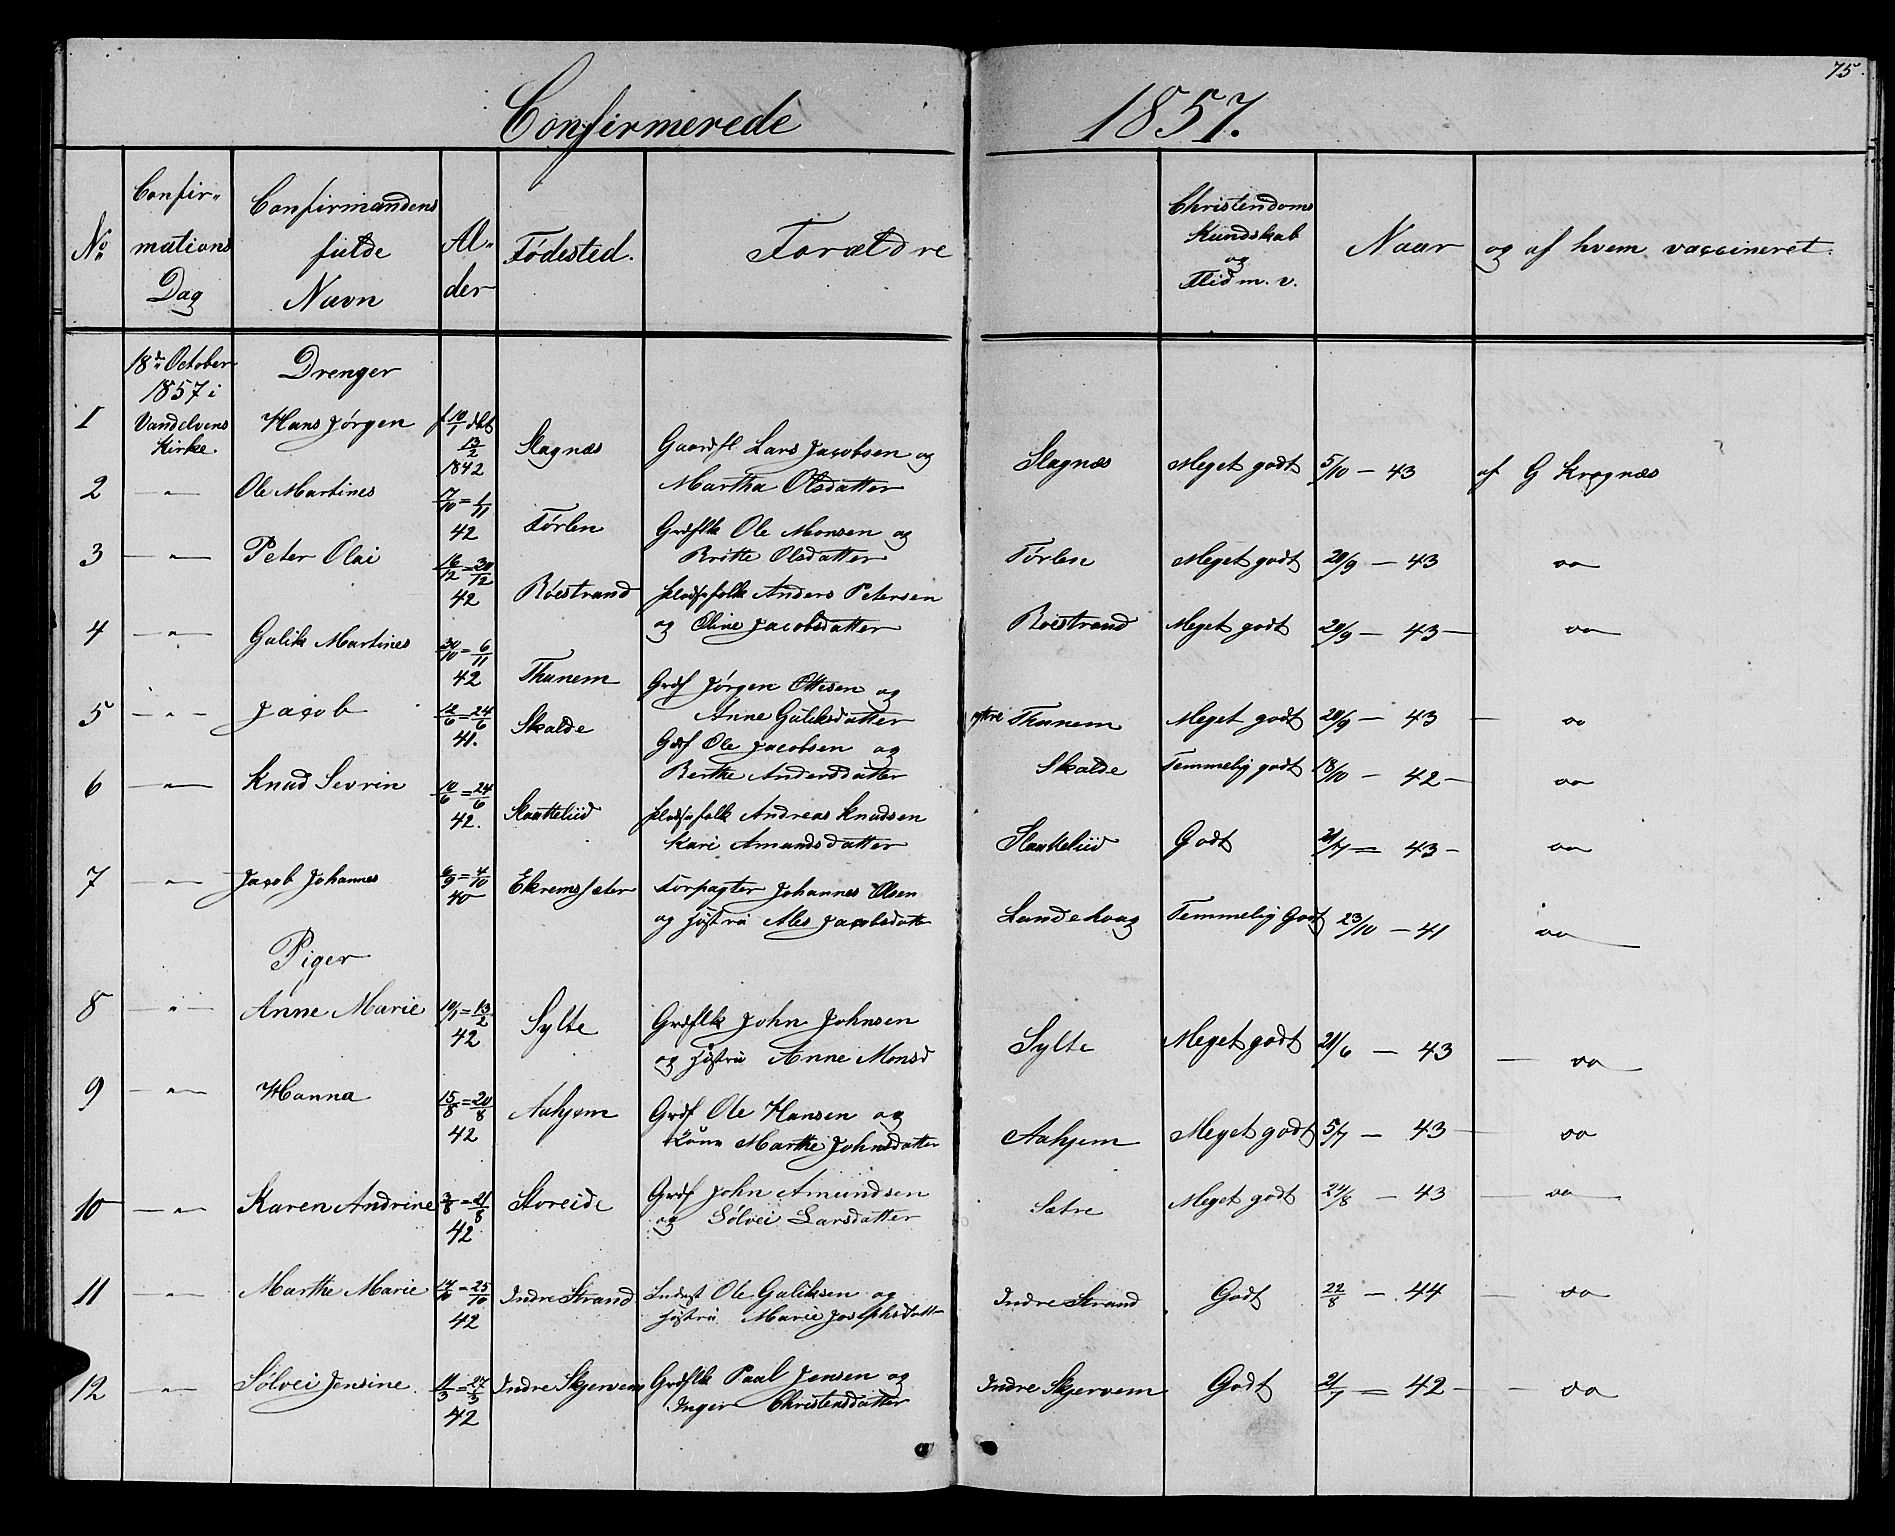 75.
Confirmerede 1857.
No
Confir-
mations
Dag
Confirmandens
fulde
Navn
Al-
der
Fødested.
Forældre
Christendoms
Kundskab
og
Flid m. v.
Naar og af hvem vaccineret.
18de October
1857 i
Vandelvens
Kirke.
Drenger
1 Hans Jørgen f 10/1 dbt 13/2 1842 Slagnæs Gaardfl Lars Jacobsen og
Martha Olsdatter Slagnæs Meget godt 5/10 - 43 af G Kragnæs
2 -"- Ole Martines 17/10 = 1/11 42 Tørlen Grdflk Ole Monsen og
Britte Olsdatter Tørlen Meget godt 20/9 - 43 oo
3 -"- Peter Olai 16/12 = 30/12 42 Röestrand pladsfolk Anders Petersen
og Oline Jacobsdatter Röestrand Meget godt 20/9 - 43 - oo
4 -"- Gulik Martines 30/10 = 6/11 42 Thunem Grdf Jørgen Ottesen og
Anne Guliksdatter ytre Thunem Meget godt 20/9 - 43 - oo
5 -"- Jacob 12/6 = 24/6 41. Skalde Grdf Ole Jacobsen og
Berthe Andersdatter Skalde Temmelig godt 18/10 - 42 - oo
6 -"- Knud Sevrin 10/6 = 24/6 42. Slaatteliid pladsfolk Andreas Knudsen
Kari Amundsdatter Slaatteliid Godt 21/7 = 43 - oo
7 -"- Jacob Johannes 6/9 = 4/10 40 Ekremsæter Forpagter Johannes Olsen
og hustru Ales Jacobsdatt Landekaag Temmelig Godt 23/10 - 41 oo
Piger
8 -"- Anne Marie 10/1 = 13/2 42 Sylte Grdflk John Johnsen
og hustru Anne Monsd Sylte Meget godt 21/6 - 43 - oo
9 -"- Hanna 15/8 = 20/8 42 Aahjem Grdf Ole Hansen og
Kone Marthe Johnsdatter Aahjem Meget godt 5/7 - 43 - oo
10 -"- Karen Andrine 3/8 = 21/8 42 Storeide Grdf John Amundsen
og Sølvei Larsdatter Sætre Meget godt 24/8 - 43 - oo
11 -"- Marthe Marie 14/10 = 25/10 42 Indre Strand Inderst Ole Guliksen og
hustru Marie Josephsdatt Indre Strand Godt 22/8 - 44 - oo
12 -"- Sølvei Jensine 11/3 = 27/3 42 Indre Skjervem Grdflk Paal Jensen og
Inger Christensdatter Indre Skjervem Godt 21/7 = 42 - oo